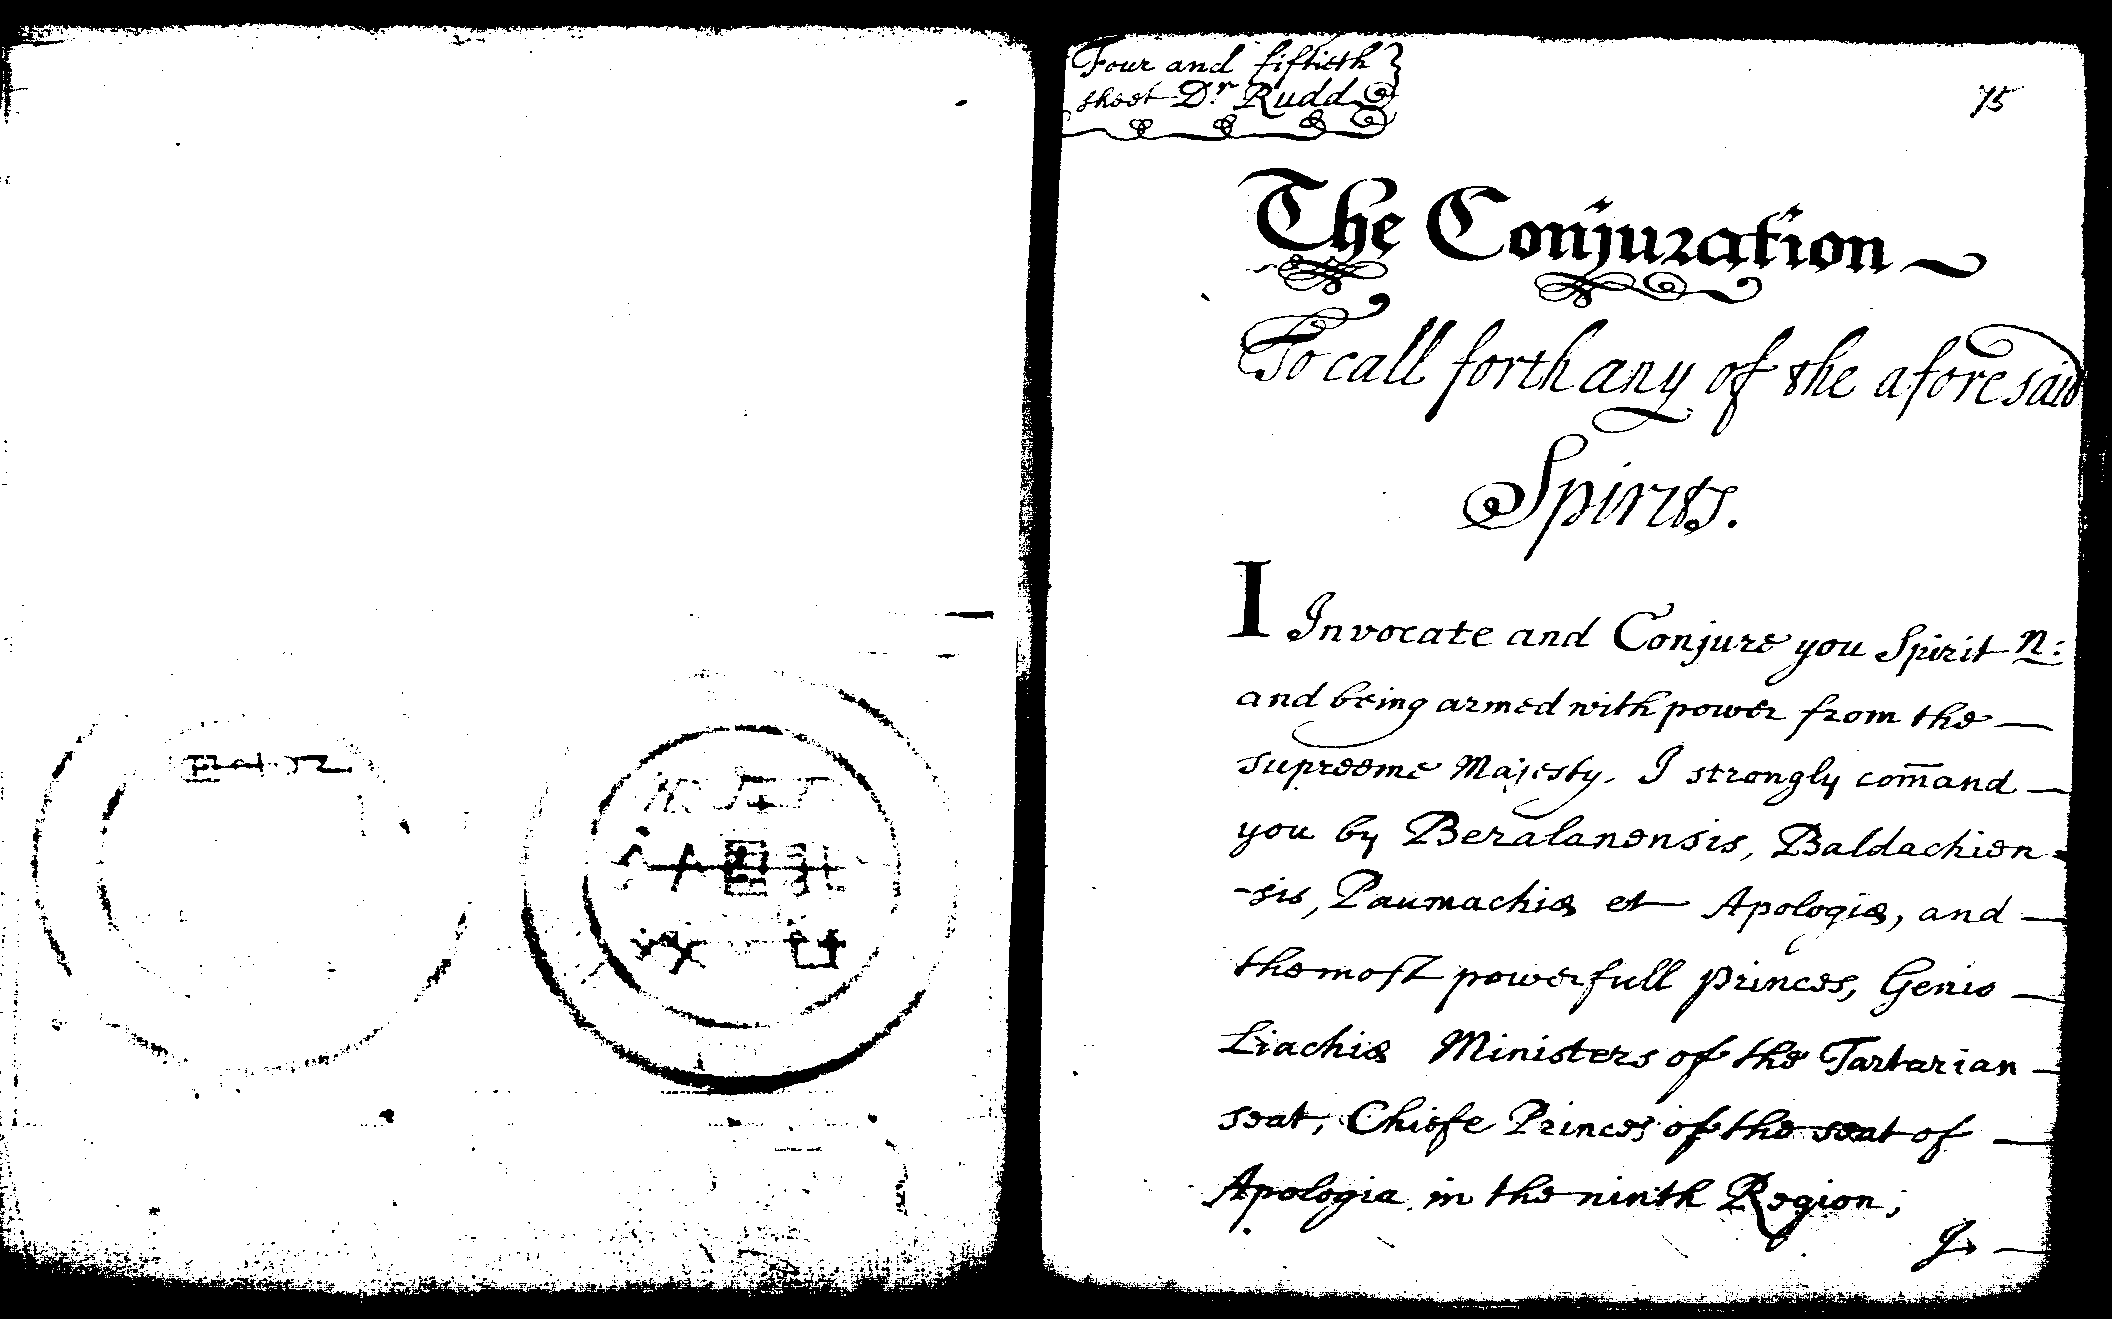 Four and fiftieth
sheet Dr Rudd
75
The Conjuration
To call forth any of the aforesaid
Spirits.
I Invocate and Conjure you Spirit N:
and being armed with power from the —
supreeme Majesty. I strongly com̄and —
you by Beralanensis, Baldachien-
-sis, Paumachiæ et Apologiæ, and —
the most powerfull Princes, Genio —
Liachiæ Ministers of the Tartarian —
seat, Chiefe Princes of the seat of —
Apologia in the ninth Region;
I —